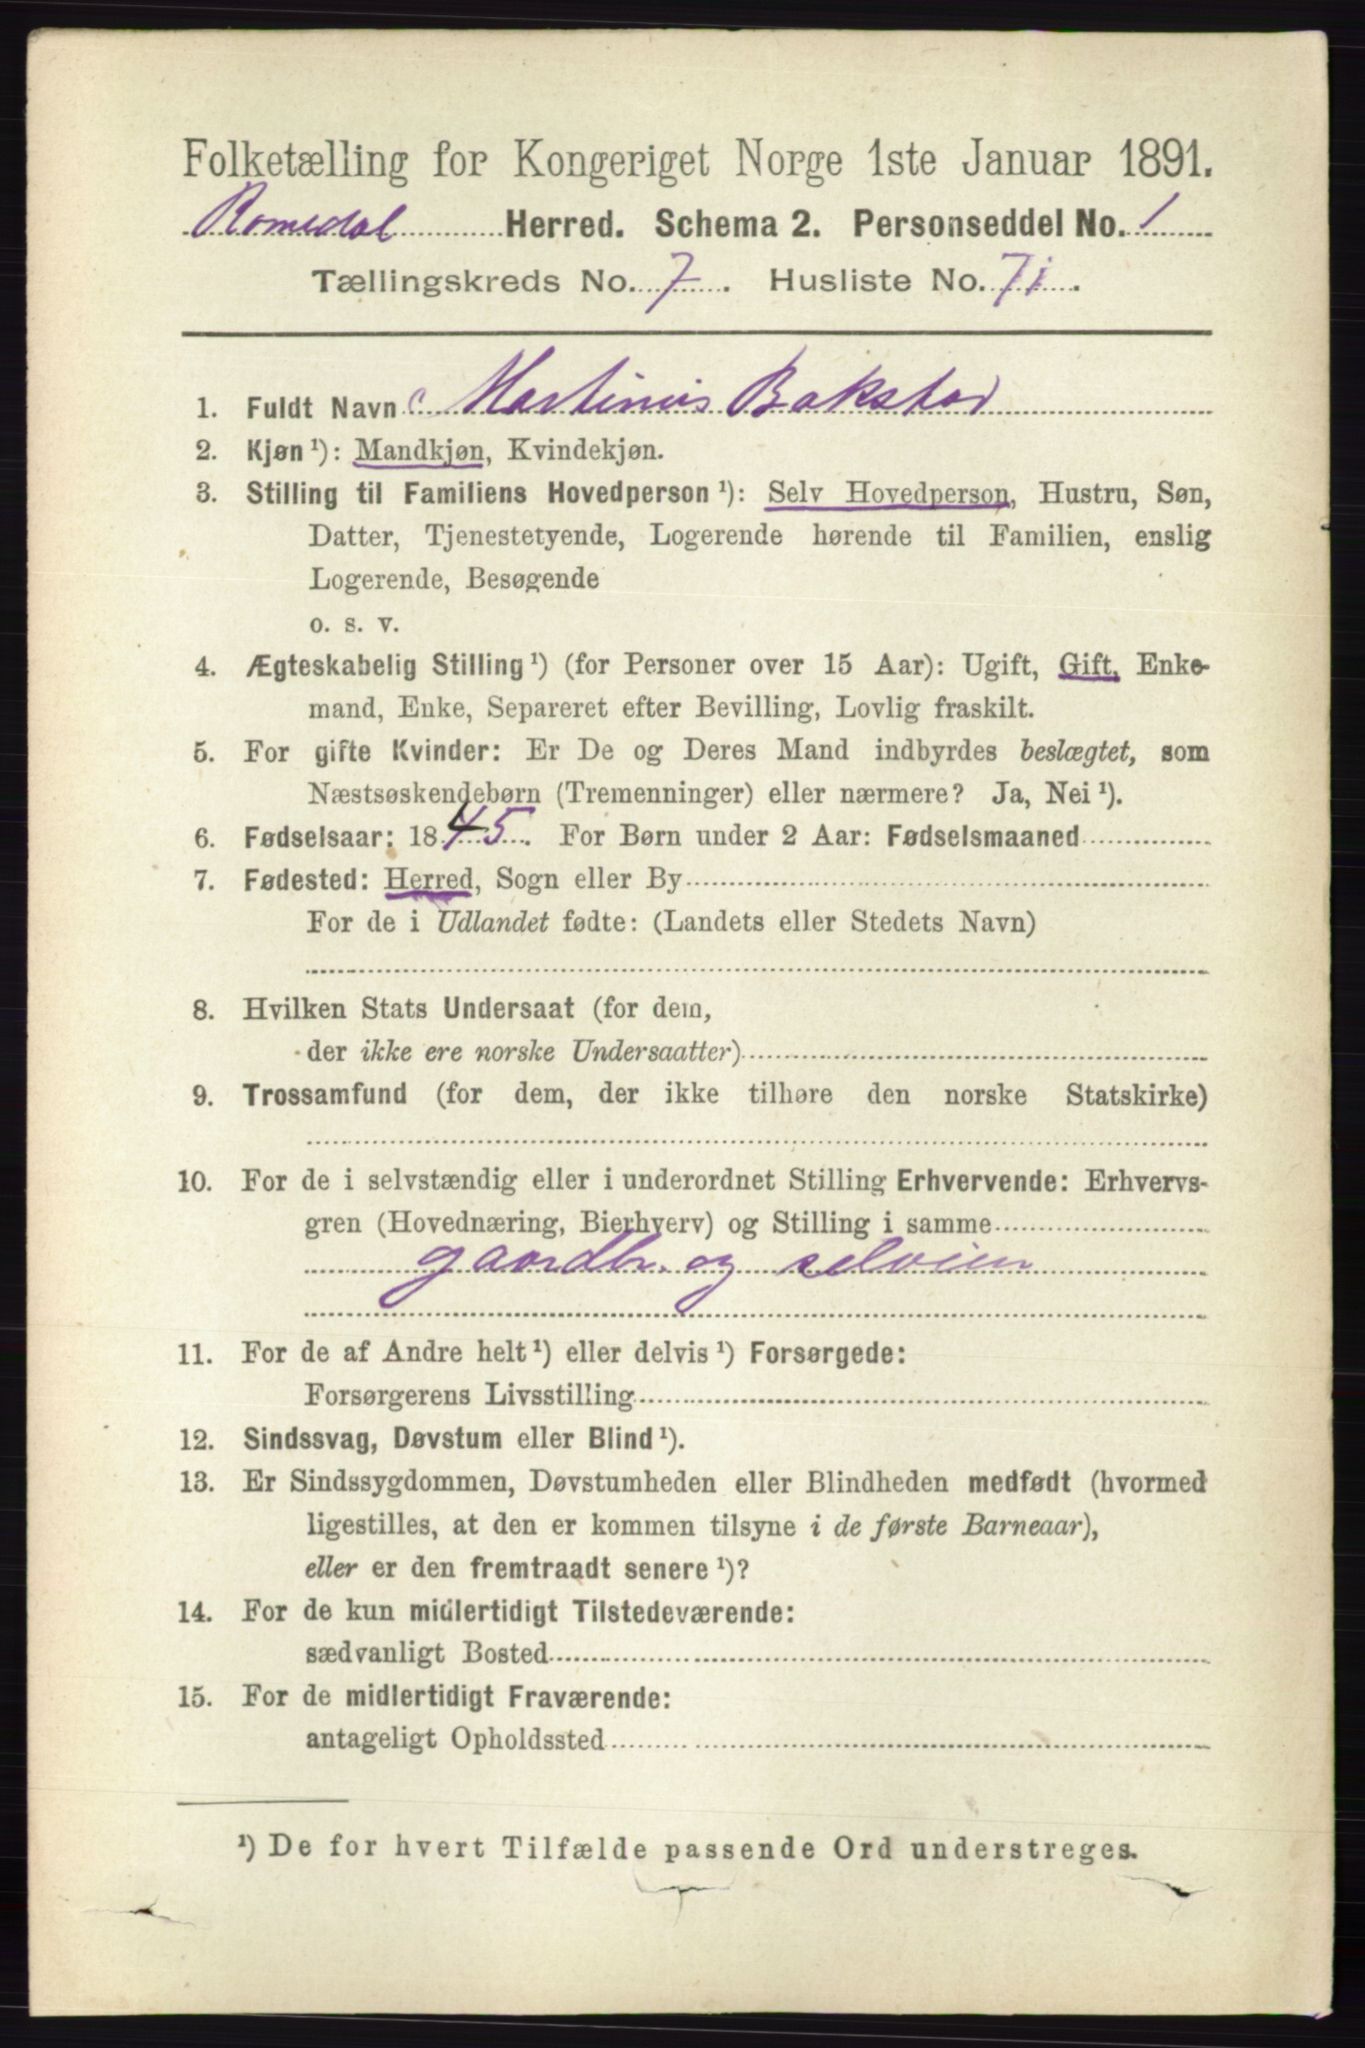 Folketælling for Kongeriget Norge 1ste Januar 1891.
Romedal Herred. Schema 2. Personseddel No. 1
Tællingskreds No. 7. Husliste No. 71.
1. Fuldt Navn Martinus Bakstad
2. Kjøn ¹): Mandkjøn, Kvindekjøn.
3. Stilling til Familiens Hovedperson ¹): Selv Hovedperson, Hustru, Søn,
Datter, Tjenestetyende, Logerende hørende til Familien, enslig
Logerende, Besøgende
o. s. v.
4. Ægteskabelig Stilling ¹) (for Personer over 15 Aar): Ugift, Gift, Enke-
mand, Enke, Separeret efter Bevilling, Lovlig fraskilt.
5. For gifte Kvinder: Er De og Deres Mand indbyrdes beslægtet, som
Næstsøskendebørn (Tremenninger) eller nærmere? Ja, Nei ¹).
6. Fødselsaar: 1845. For Børn under 2 Aar: Fødselsmaaned
7. Fødested: Herred, Sogn eller By
For de i Udlandet fødte: (Landets eller Stedets Navn)
8. Hvilken Stats Undersaat (for dem,
der ikke ere norske Undersaatter)
9. Trossamfund (for dem, der ikke tilhøre den norske Statskirke)
10. For de i selvstændig eller i underordnet Stilling Erhvervende: Erhvervs-
gren (Hovednæring, Bierhverv) og Stilling i samme
gaardbr. og selveier
11. For de af Andre helt ¹) eller delvis ¹) Forsørgede:
Forsørgerens Livsstilling
12. Sindssvag, Døvstum eller Blind ¹).
13. Er Sindssygdommen, Døvstumheden eller Blindheden medfødt (hvormed
ligestilles, at den er kommen tilsyne i de første Barneaar),
eller er den fremtraadt senere ¹)?
14. For de kun midlertidigt Tilstedeværende:
sædvanligt Bosted
15. For de midlertidigt Fraværende:
antageligt Opholdssted
¹) De for hvert Tilfælde passende Ord understreges.